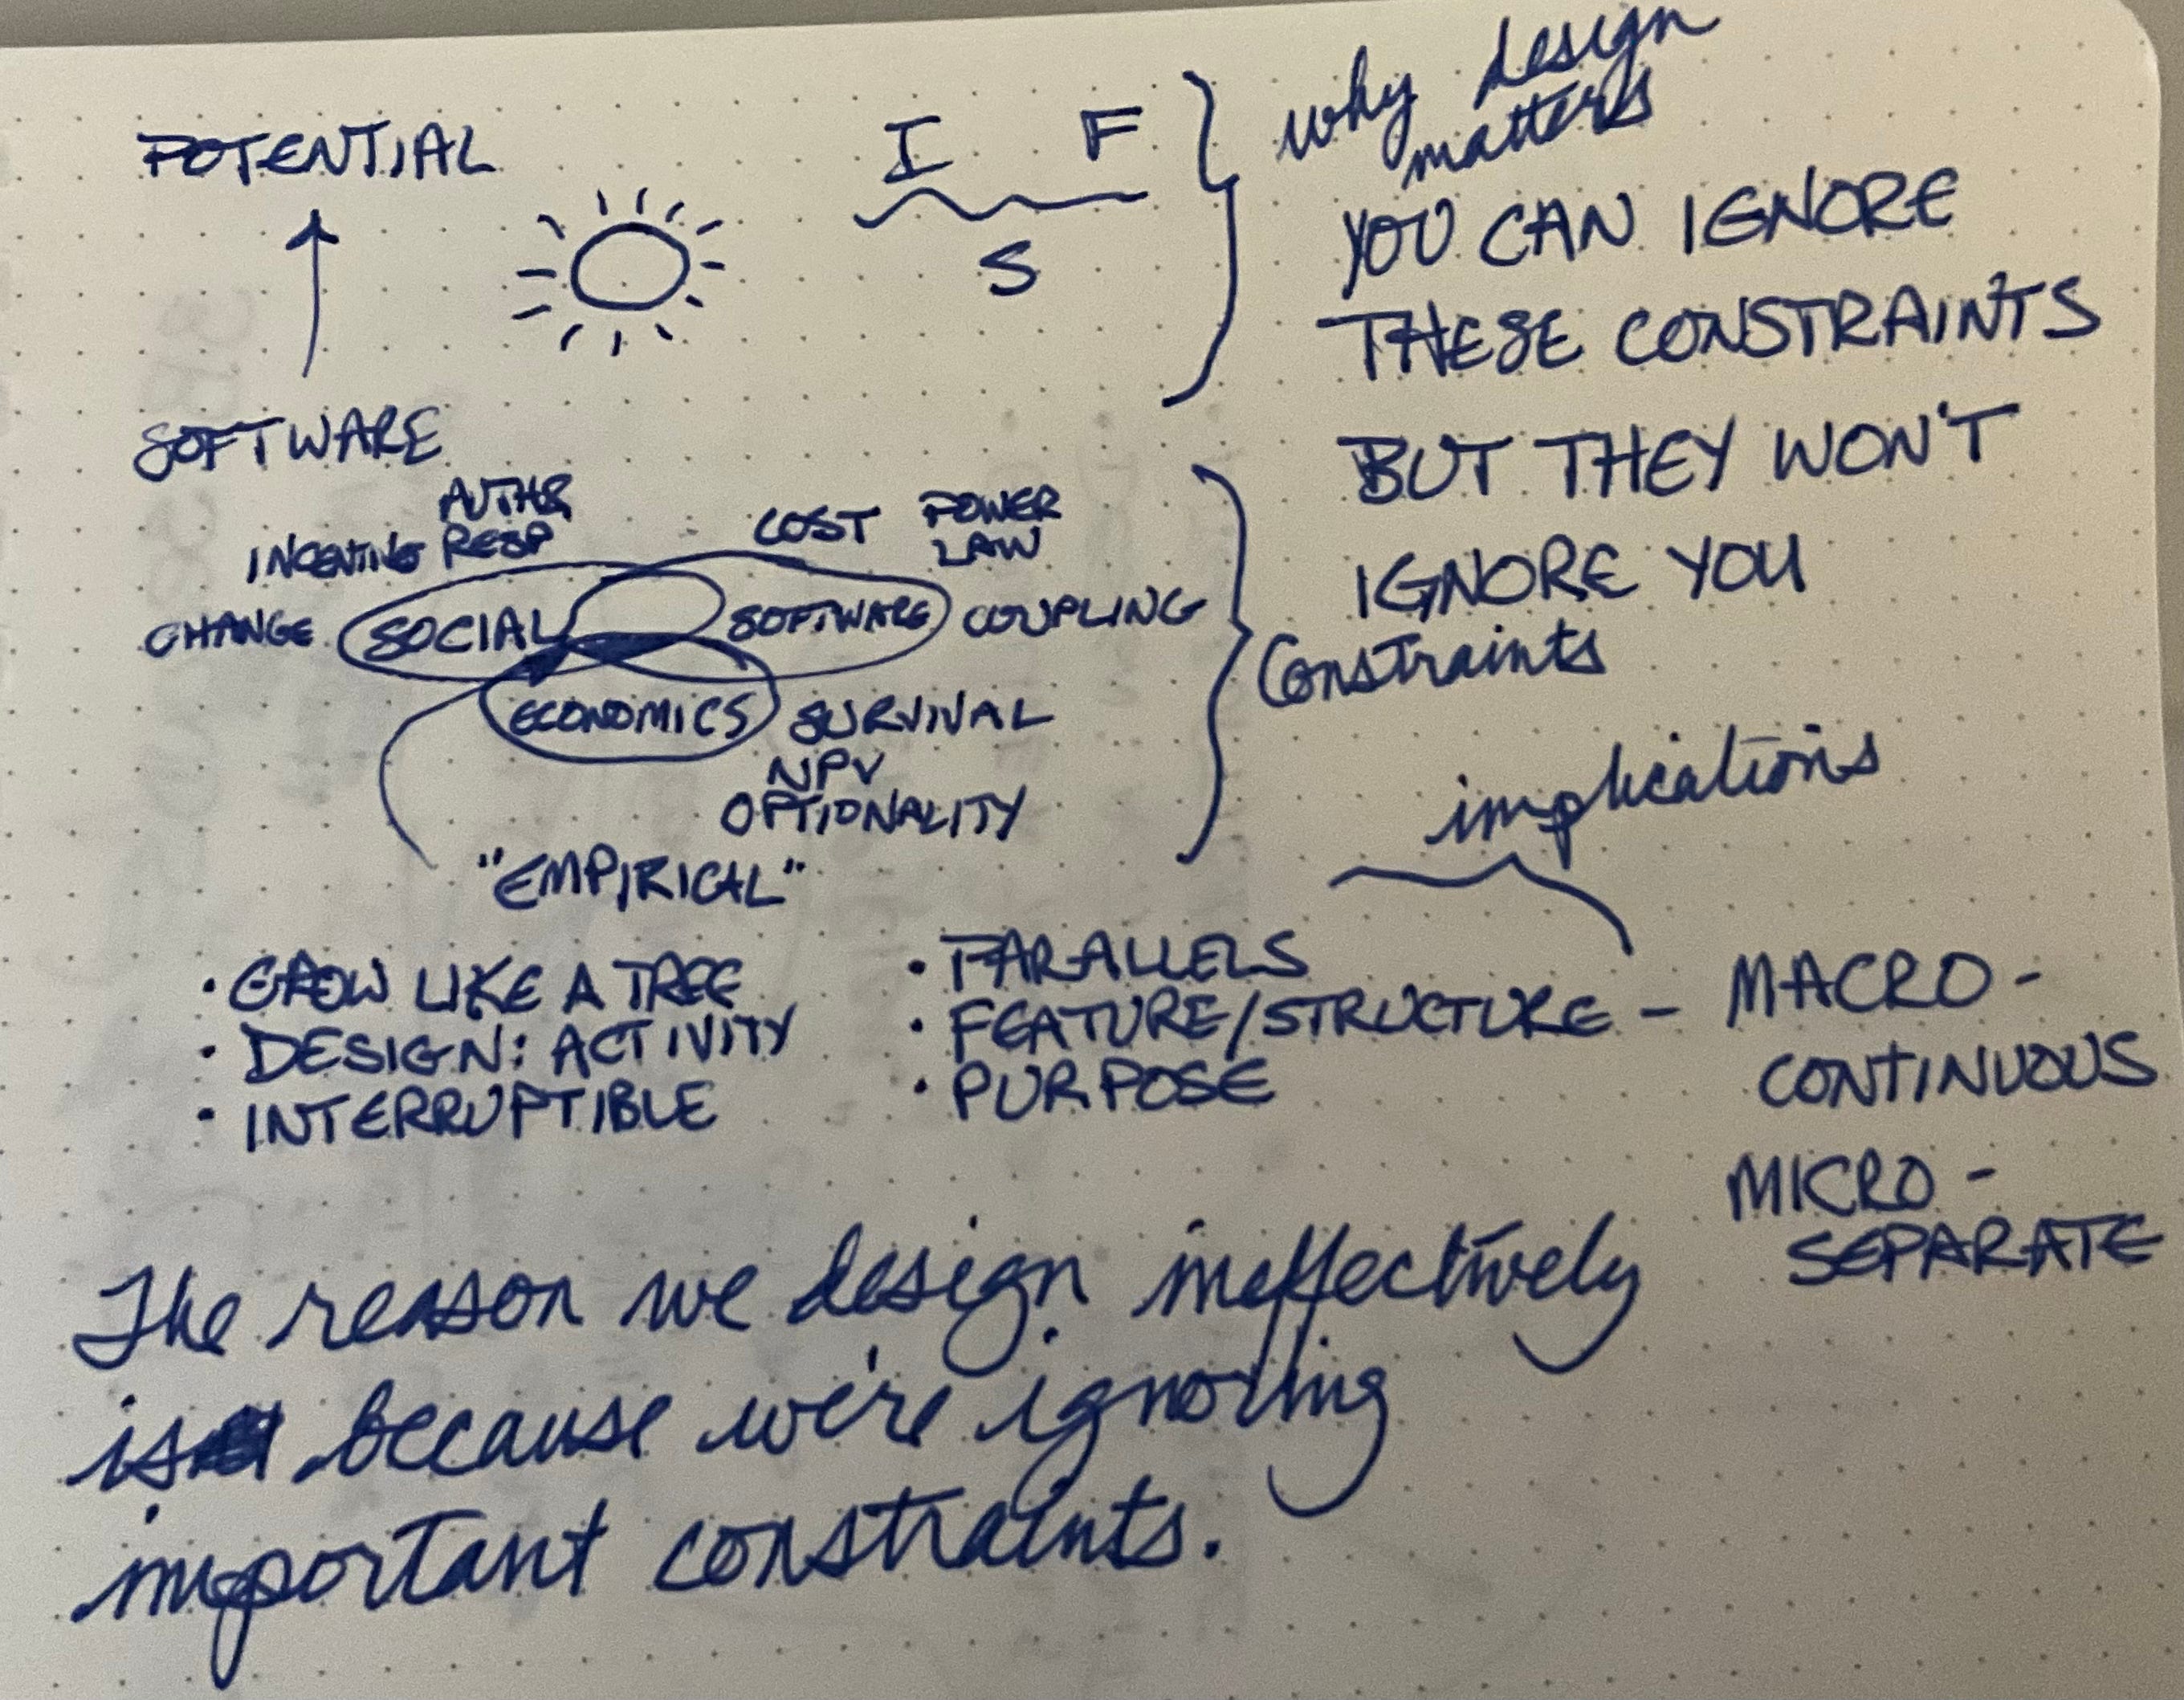 why design
matters
POTENTIAL
I F
S
YOU CAN IGNORE
THESE CONSTRAINTS
BUT THEY WON'T
IGNORE YOU
SOFTWARE
AUTH &
RESP
INCENTIVE
CHANGE
SOCIAL
COST
POWER
LAW
SOFTWARE
COUPLING
ECONOMICS
SURVIVAL
NPV
OPTIONALITY
"EMPIRICAL"
Constraints
implications
• GROW LIKE A TREE
• DESIGN: ACTIVITY
• INTERRUPTIBLE
• PARALLELS
• FEATURE/STRUCTURE –
• PURPOSE
MACRO -
CONTINUOUS
MICRO -
SEPARATE
The reason we design ineffectively
is because we're ignoring
important constraints.